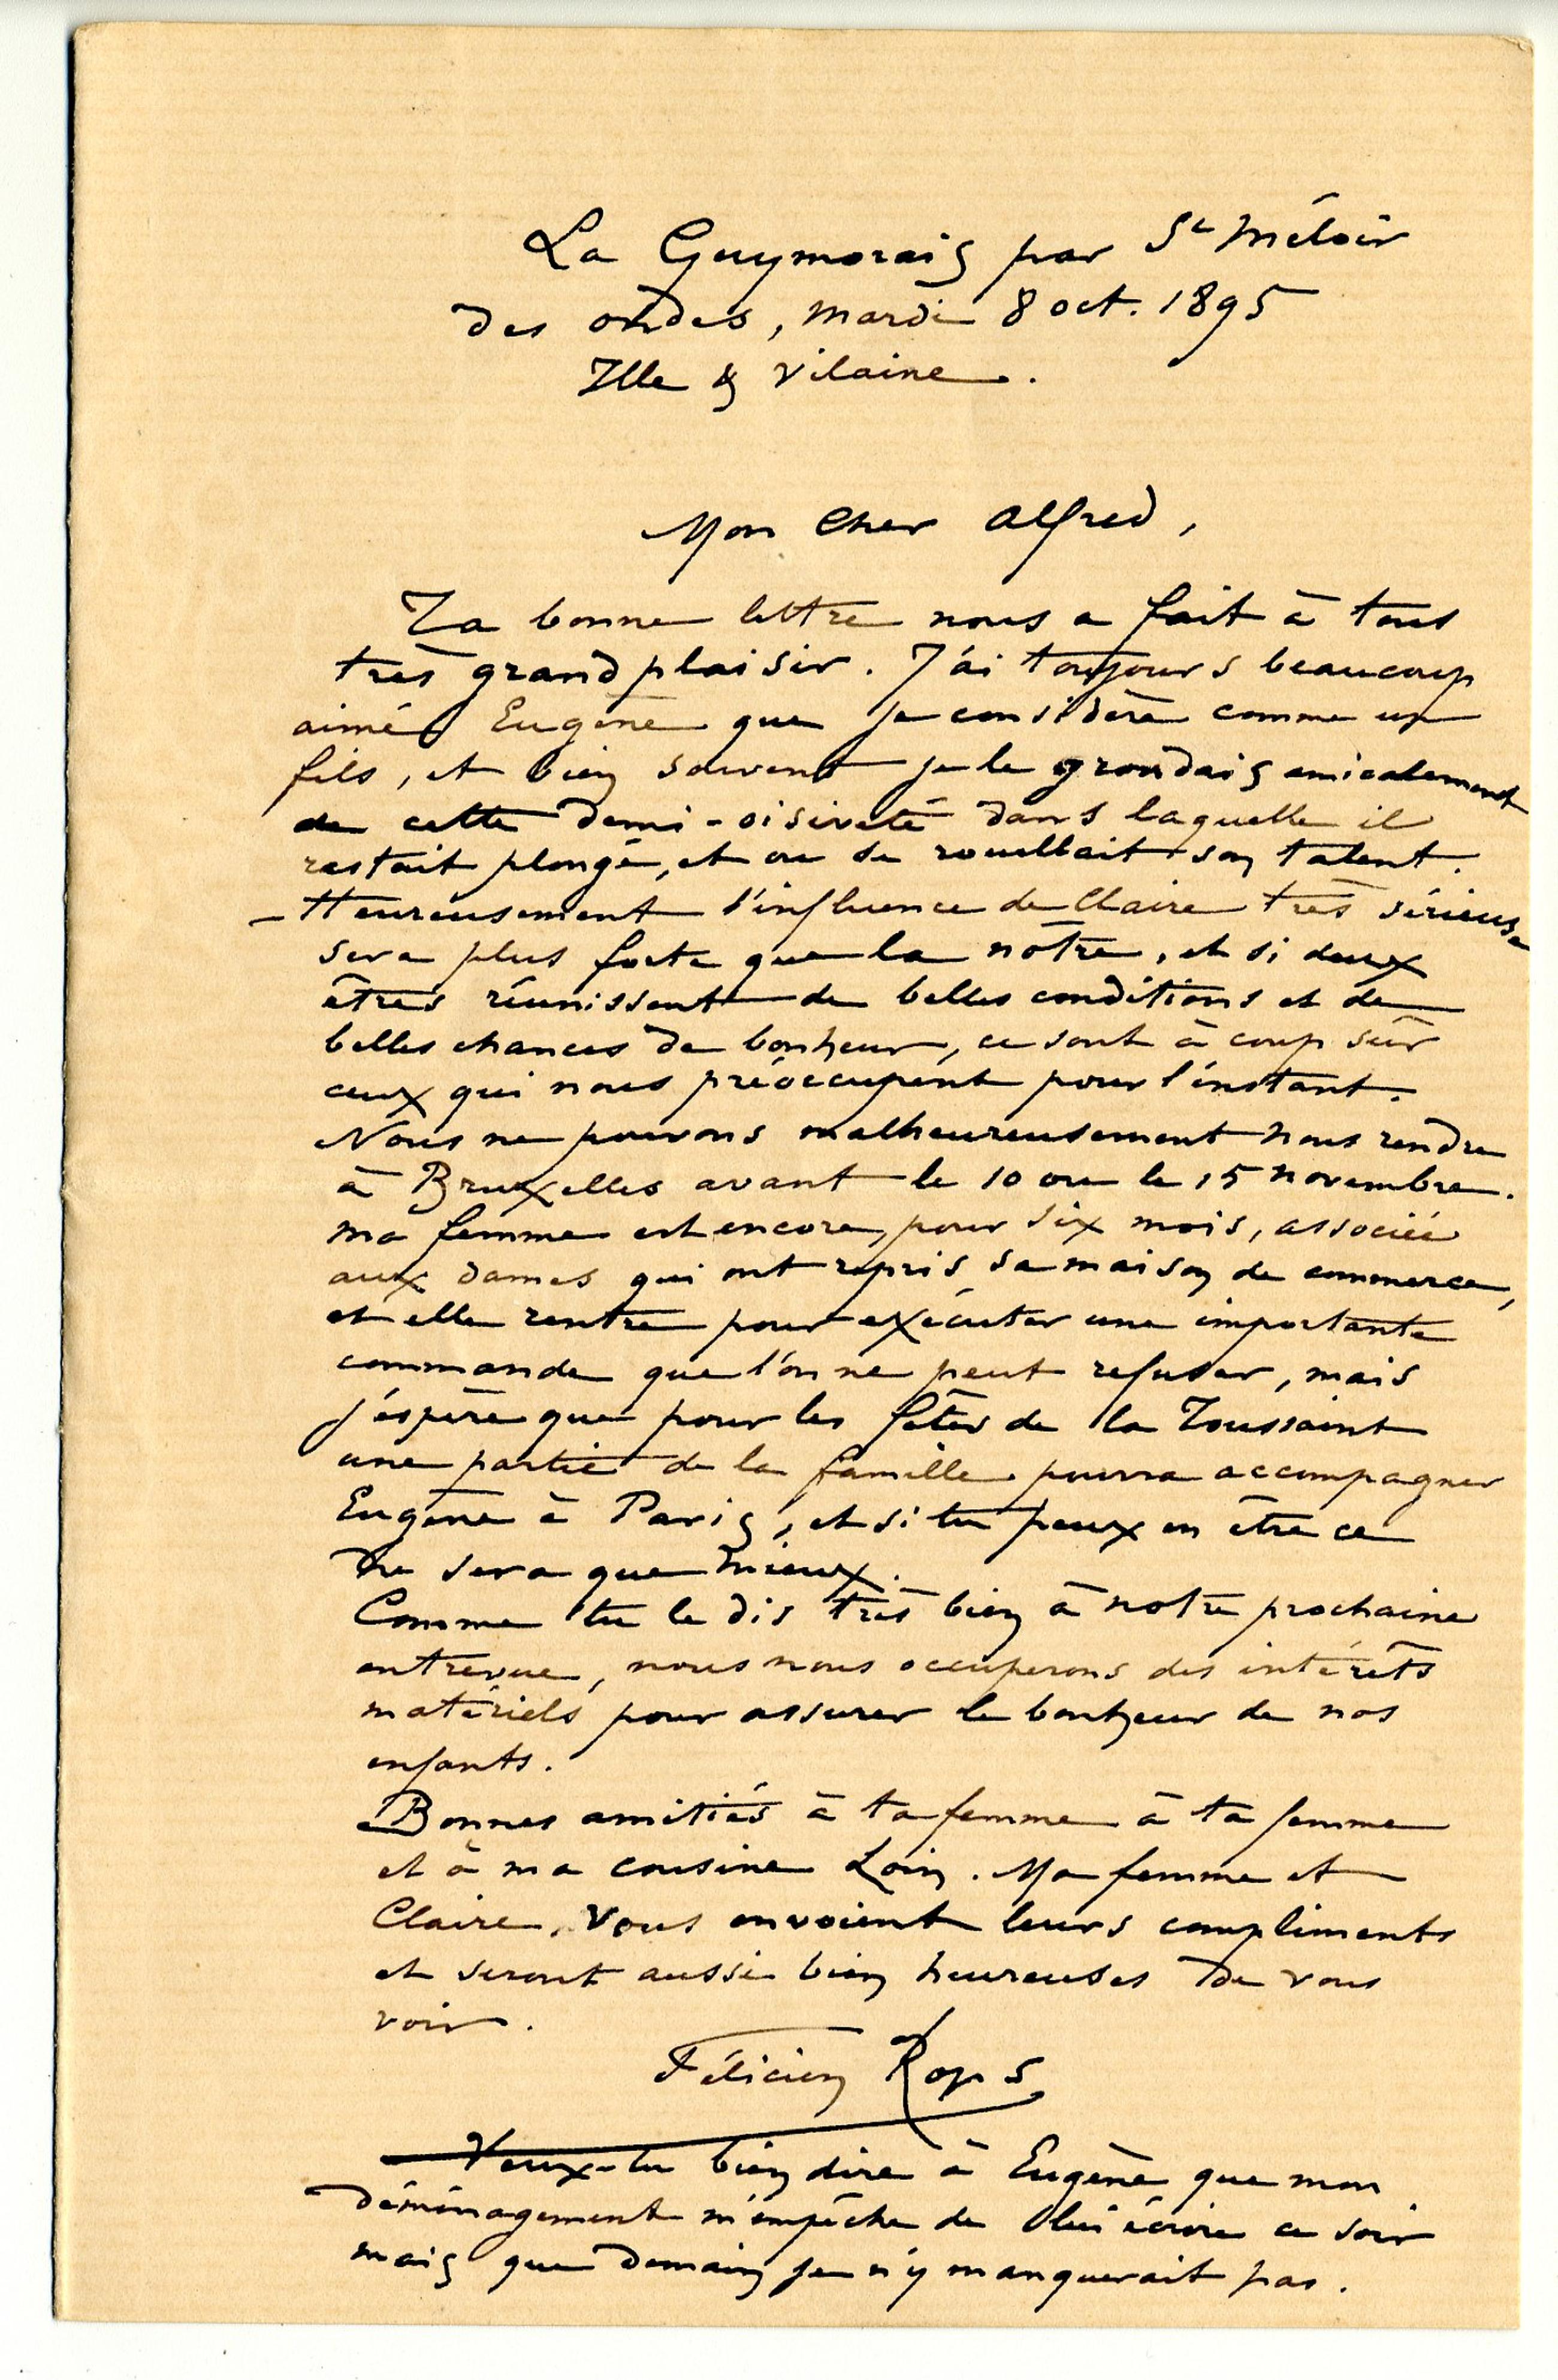 La Guymorais par St Méloir
des ondes, mardi 8 oct. 1895
Ille & Vilaine.
Mon Cher Alfred,
Ta bonne lettre nous a fait à tous
très grand plaisir. J'ai toujours beaucoup
aimé Eugène que je considère comme un
fils, et bien souvent je le grondais amicalement
de cette demi-oisiveté dans laquelle il
restait plongé, et où se rouillait son talent.
- Heureusement l'influence de Claire très sérieuse
sera plus forte que la nôtre, et si deux
êtres réunissent de belles conditions et de
belles chances de bonheur, ce sont à coup sûr
ceux qui nous préoccupent pour l'instant.
Nous ne pouvons malheureusement nous rendre
à Bruxelles avant le 10 ou le 15 novembre.
ma femme est encore, pour six mois, associée
aux dames qui ont repris sa maison de commerce,
et elle rentre pour exécuter une importante
commande que l'on ne peut refuser, mais
j'espère que pour les fêtes de la Toussaint
une partie de la famille pourra accompagner
Eugène à Paris, et si tu peux en être ce
ne sera que mieux.
Comme tu le dis très bien à notre prochaine
entrevue, nous nous occuperons des intérêts
matériels pour assurer le bonheur de nos
enfants.
Bonnes amitiés à ta femme à ta femme
et à ma cousine Loin. Ma femme et
Claire, vous envoient leurs compliments
et seront aussi bien heureuses de vous
voir.
Félicien Rops
Veux-tu bien dire à Eugène que mon
déménagement m'empêche de lui écrire ce soir
mais que demain je n'y manquerait pas.